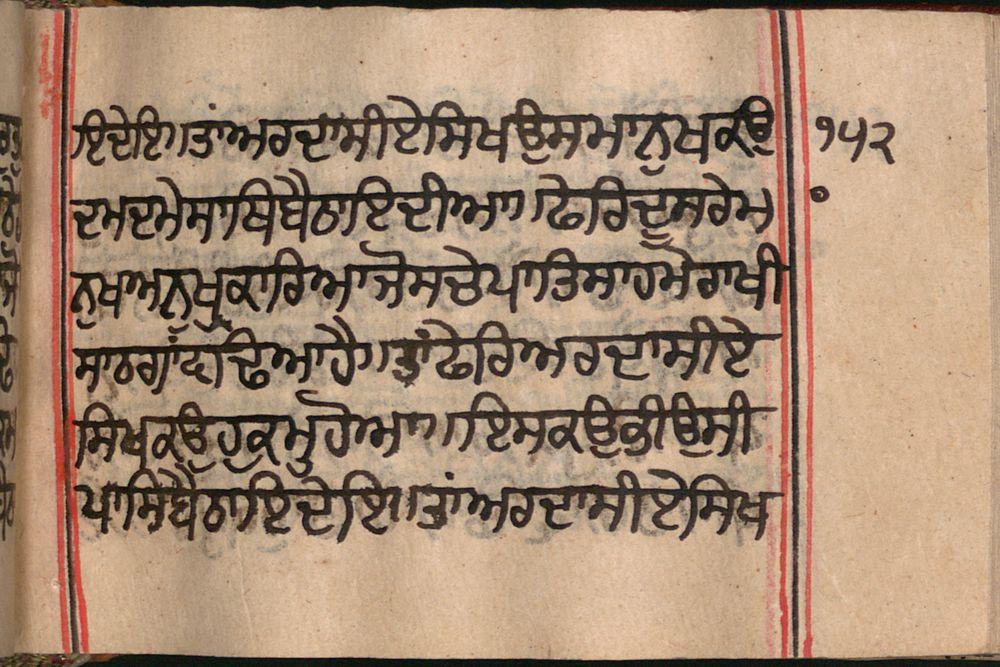 ਇਦੇਇ।ਤਾਂਅਰਦਾਸੀਏਸਿਖਉਸਮਾਨੁਖਕਉ ੧੫੨
ਦਮਦਮੇਸਾਥਿਬੈਠਾਇਦੀਆ।ਫੇਰਿਦੂਸਰੇਮ
ਨੁਖਾਅਨੁਖੁਕਾਰਿਆਜੋਸਚੇਪਾਤਿਸਾਹਮੇਰਾਖੀ
ਸਾਠਗਾਂਢਾਢਿਆਹੈ।ਤਾਂਫੇਰਿਅਰਦਾਸੀਏ
ਸਿਖਕਉਹੁਕਮੁਹੋਆ।ਇਸਕਉਭੀਉਸੀ
ਪਾਸਿਬੈਠਾਇਦੇਇ।ਤਾਂਅਰਦਾਸੀਏਸਿਖ